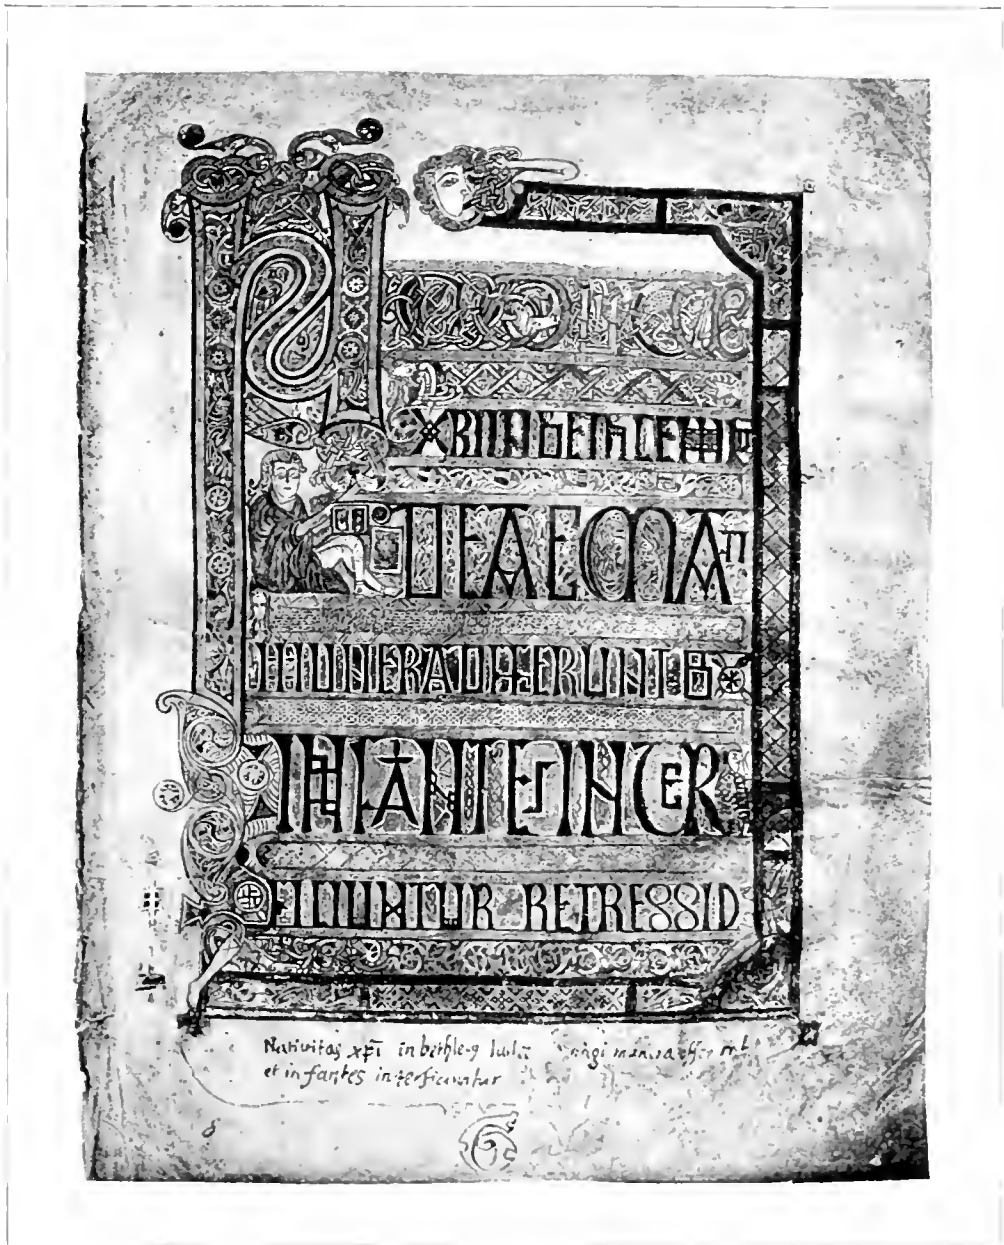 XPI IN BETHLEM
IUDEAE MAGI
MUNERA OFFERUNT ET
INFANTES INTER
FICIUNTUR REGRESSIO
Nativitas xpi in bethle magi munera
et infantes interficiuntur